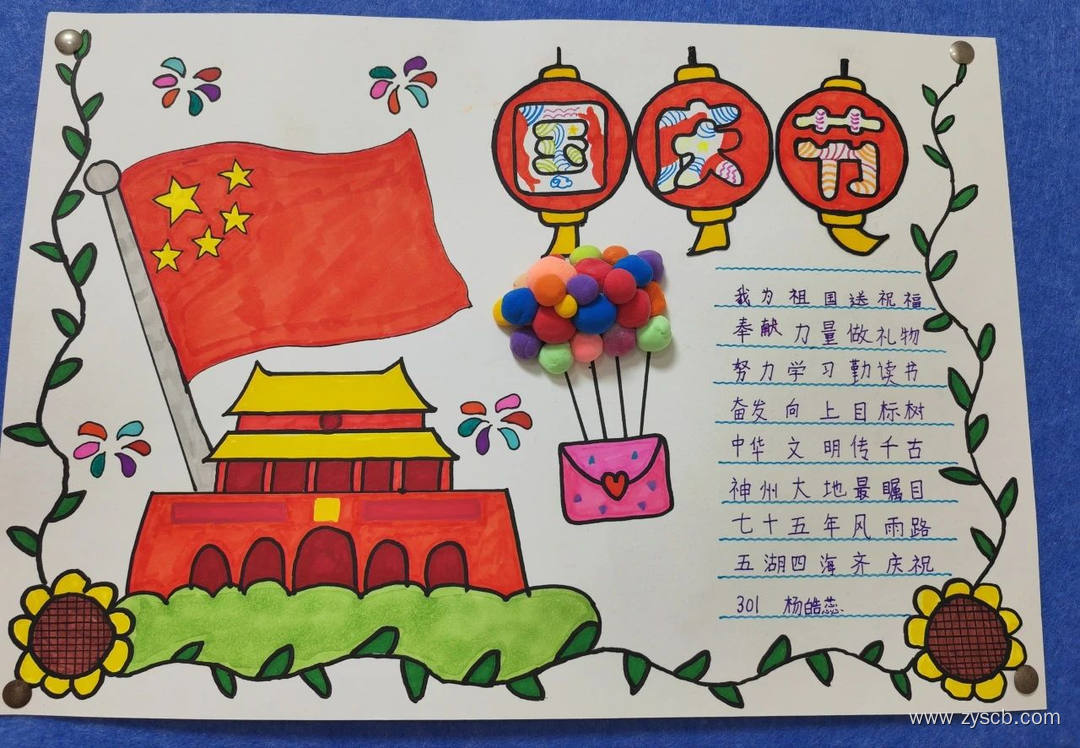 国庆节
我为祖国送祝福
奉献力量做礼物
努力学习勤读书
奋发向上目标树
中华文明传千古
神州大地最瞩目
七十五年风雨路
五湖四海齐庆祝
301 杨皓蕊
www.zyscb.com